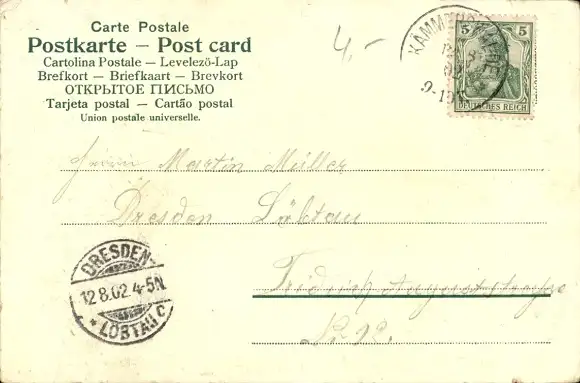 Carte Postale
Postkarte — Post card
Cartolina Postale — Levelező-Lap
Brefkort — Briefkaart — Brevkort
ОТКРЫТОЕ ПИСЬМО
Tarjeta postal — Cartão postal
Union postale universelle.
4,-
5 5
DEUTSCHES REICH
Herrn Martin Müller
Dresden Löbtau
Fridrich Auguststraße
No. 12.
DRESDEN-
12 8.02 4-5N
* LÖBTAU C